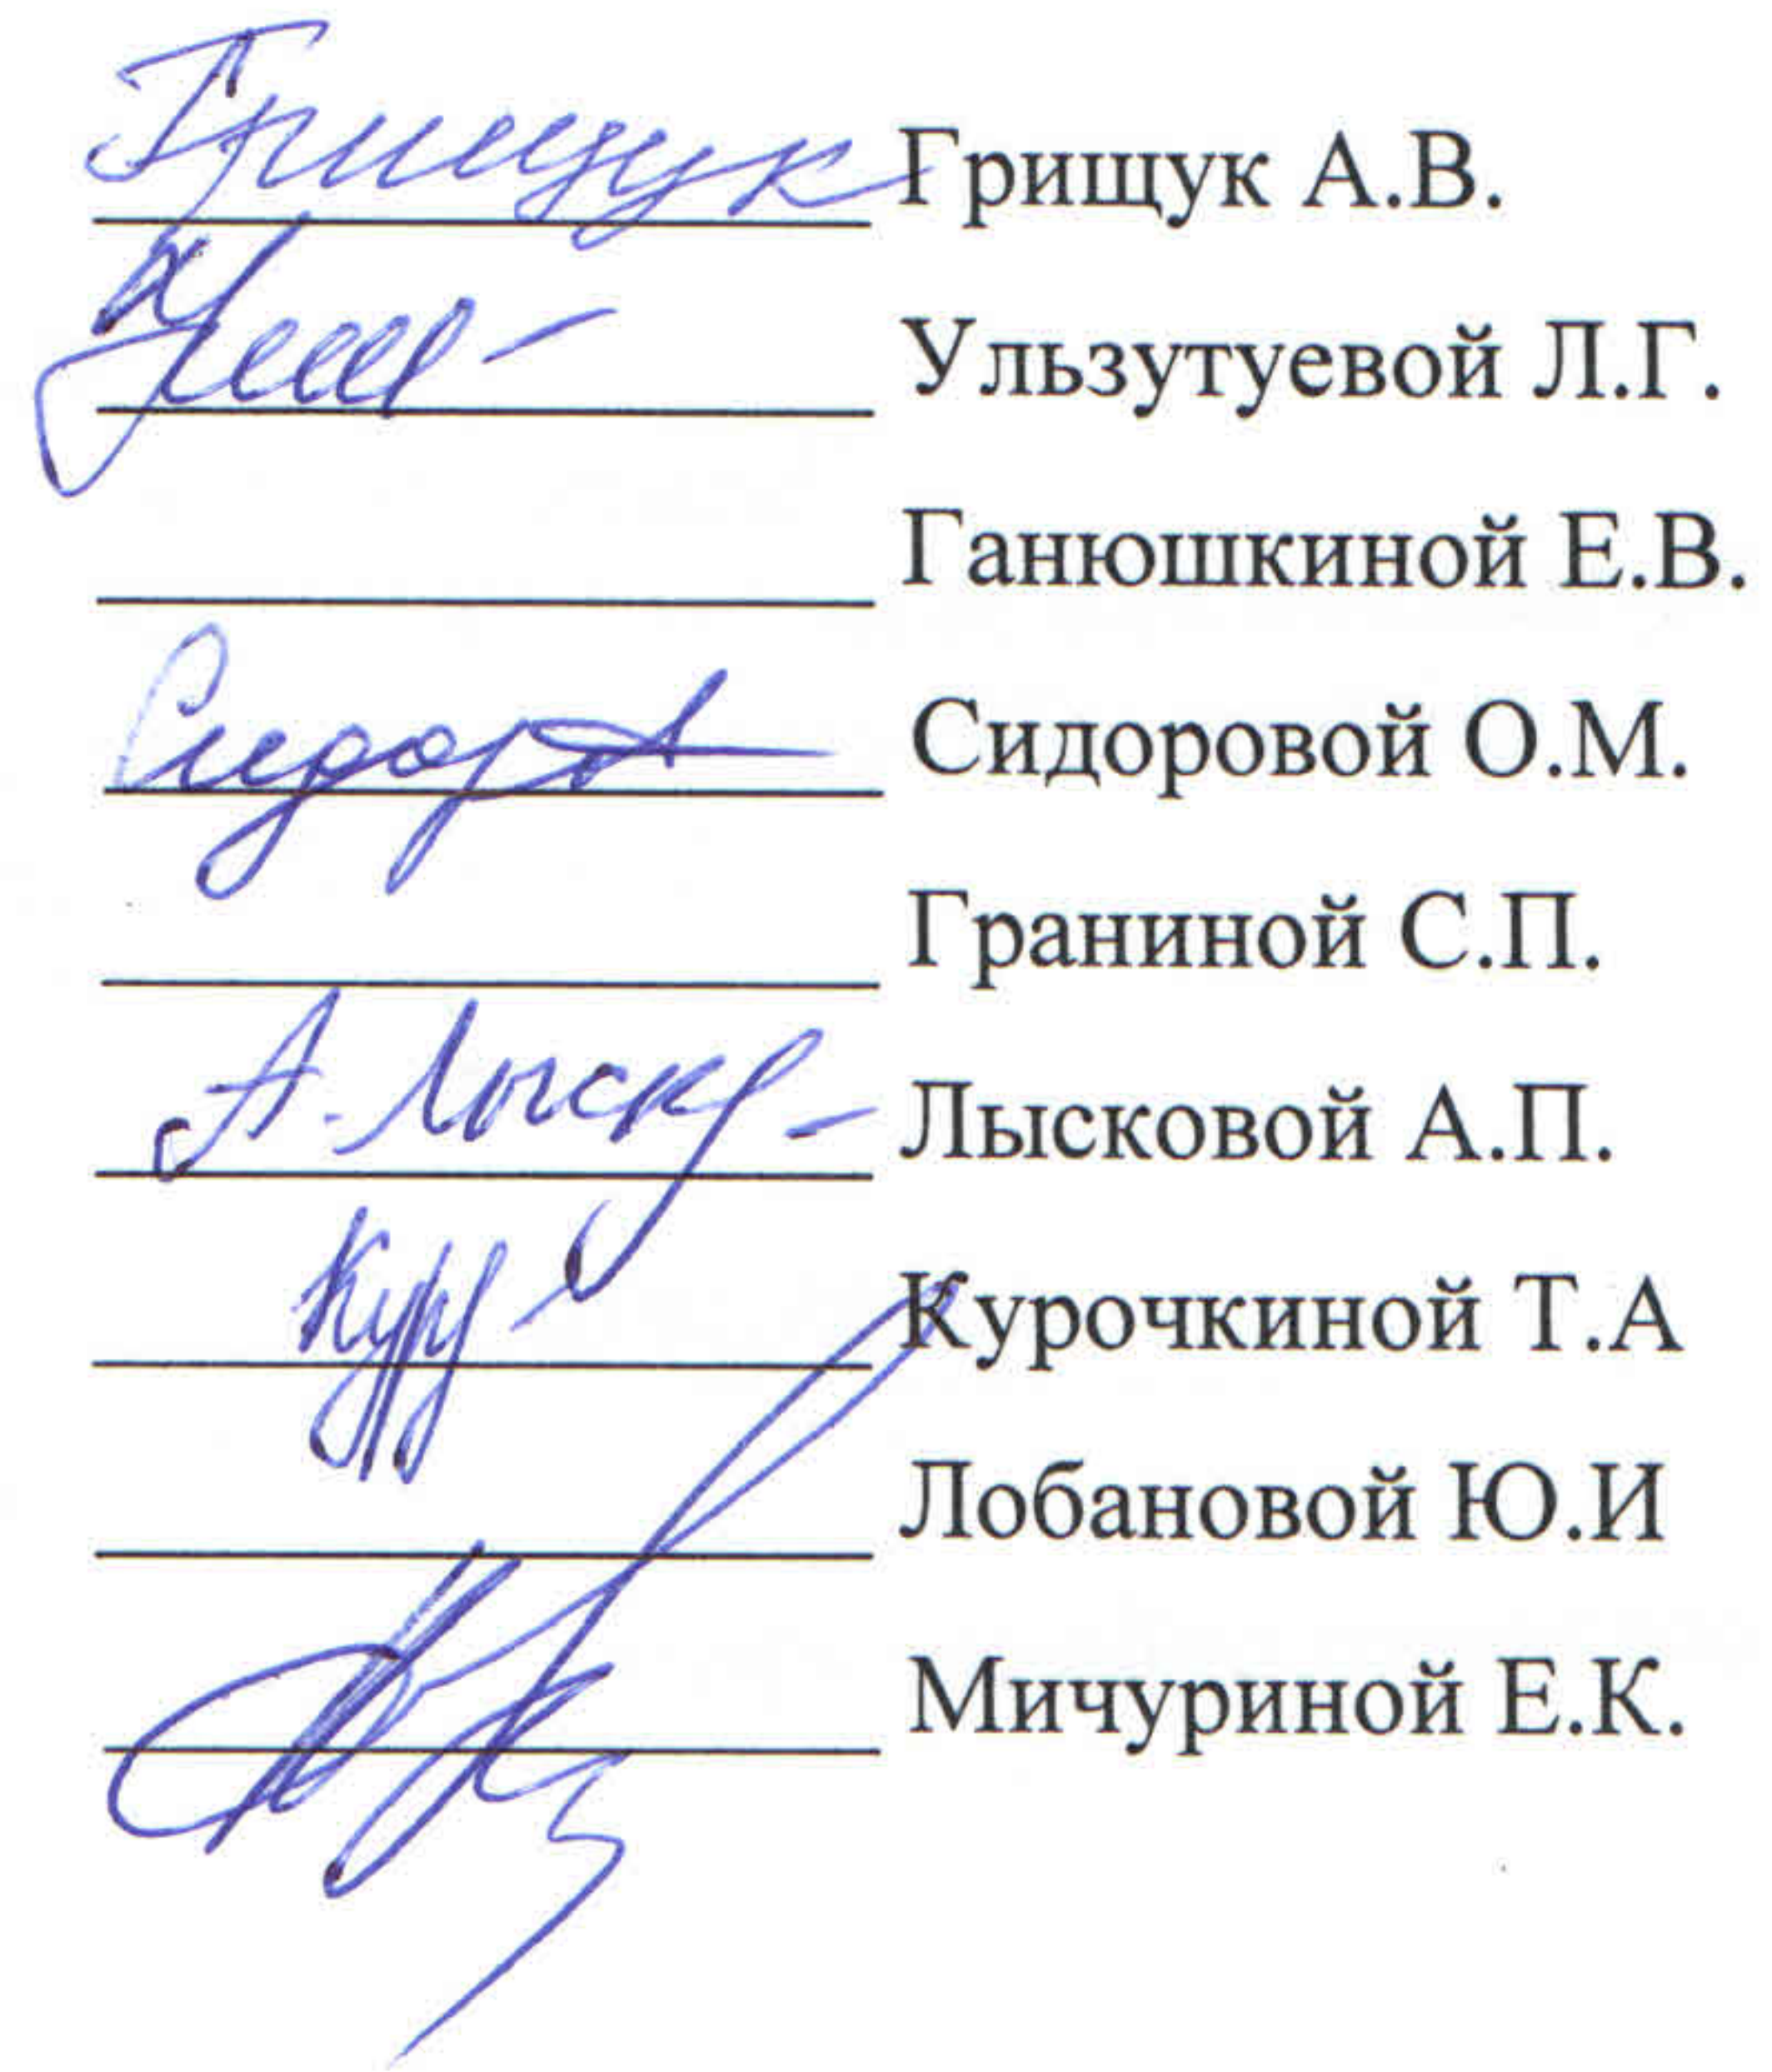 Грищук Грищук А.В.
Ульзутуевой Л.Г.
Ганюшкиной Е.В.
Сидоровой О.М.
Граниной С.П.
А. Лыск Лысковой А.П.
Кур Курочкиной Т.А
Лобановой Ю.И
Мичуриной Е.К.